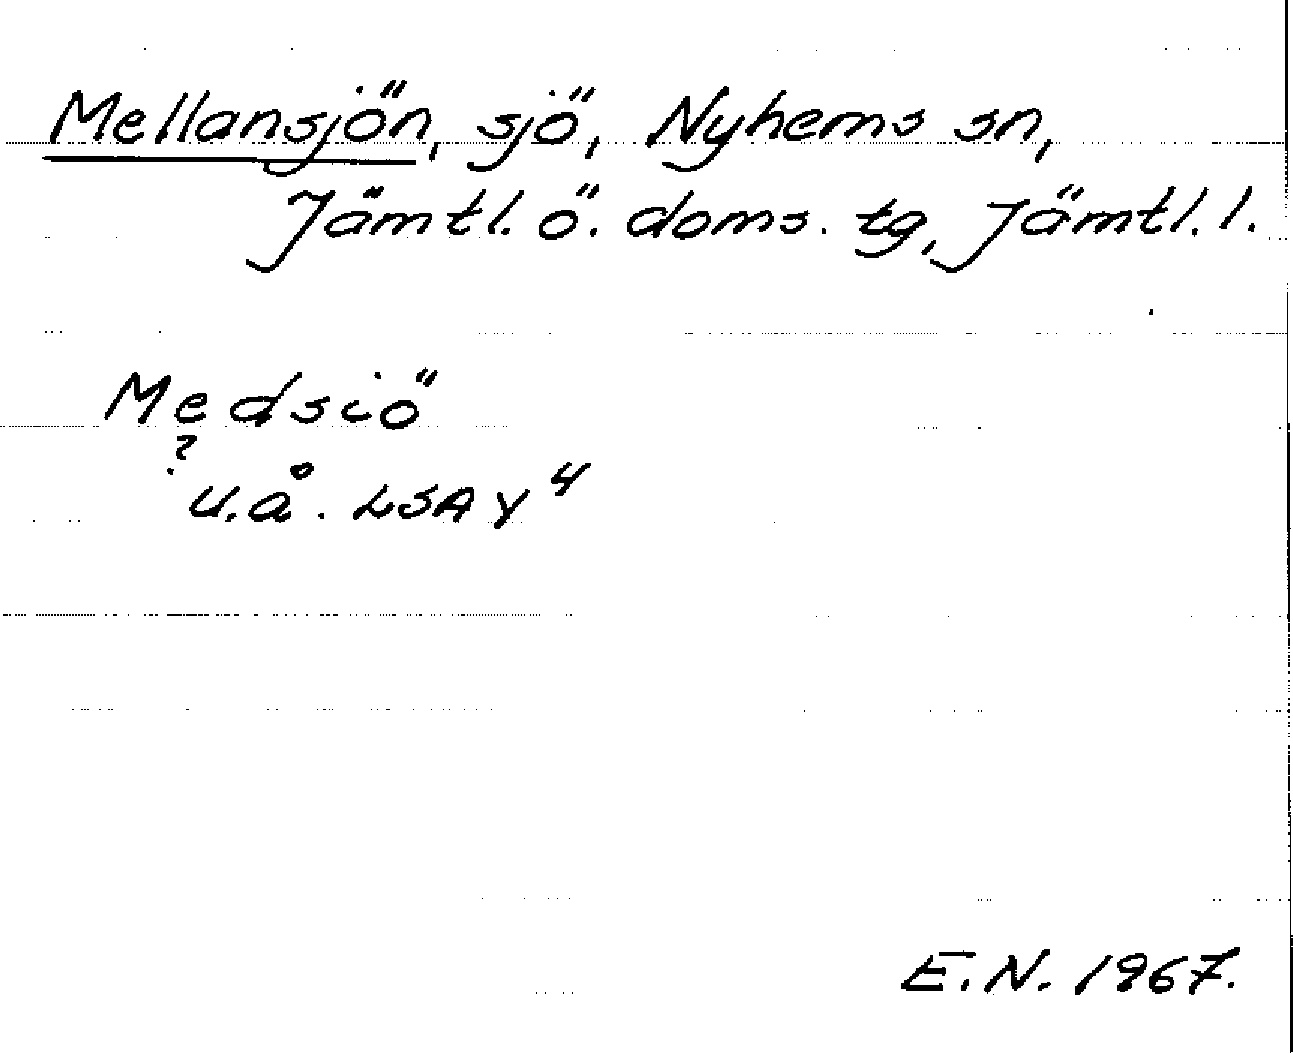 Mellansjön, sjö, Nyhems sn,
Jämtl. ö. doms. tg, Jämtl. l.
Medsiö
?
u.å. LSA Y 4
E.N. 1967.